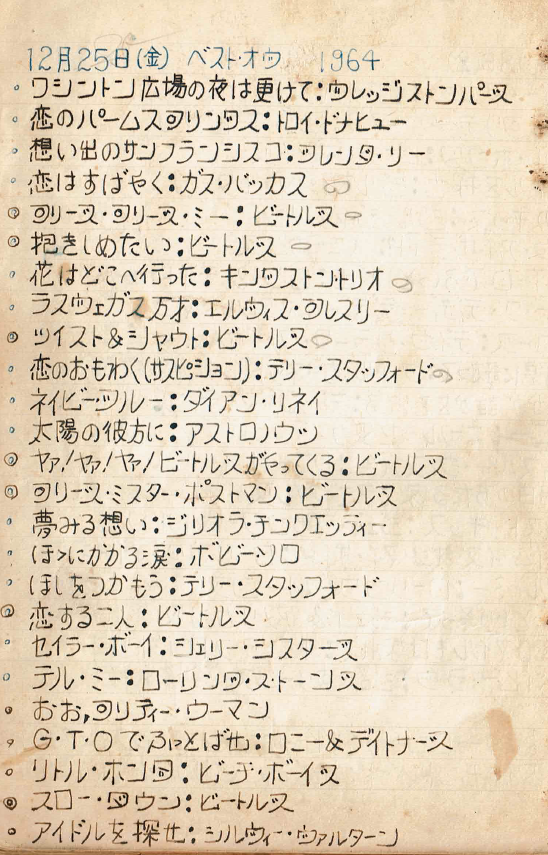 12月25日(金) ベスト・オヴ 1964
ワシントン広場の夜は更けて:ヴィレッジストンパーズ
恋のパームスプリングス:トロイ・ドナヒュー
想い出のサンフランシスコ:ブレンダ・リー
恋はすばやく:ガス・バッカス
プリーズ・プリーズ・ミー:ビートルズ
抱きしめたい:ビートルズ
花はどこへ行った:キングストン・トリオ
ラスヴェガス万才:エルヴィス・プレスリー
ツイスト&シャウト:ビートルズ
恋のおもわく(サスピション):テリー・スタッフォード
ネイビーブルー:ダイアン・リネイ
太陽の彼方に:アストロノウツ
ヤァ!ヤァ!ヤァ!ビートルズがやってくる:ビートルズ
プリーズ・ミスター・ポストマン:ビートルズ
夢みる想い:ジリオラ・チンクエッティー
ほゝにかかる涙:ボビーソロ
ほしをつかもう:テリー・スタッフォード
恋する二人:ビートルズ
セイラー・ボーイ:シェリー・シスターズ
テル・ミー:ローリング・ストーンズ
おお,プリティー・ウーマン
G・T・Oでぶっとばせ:ロニー&デイトナーズ
リトル・ホンダ:ビーチ・ボーイズ
スロー・ダウン:ビートルズ
アイドルを探せ:シルヴィー・ヴァルターン